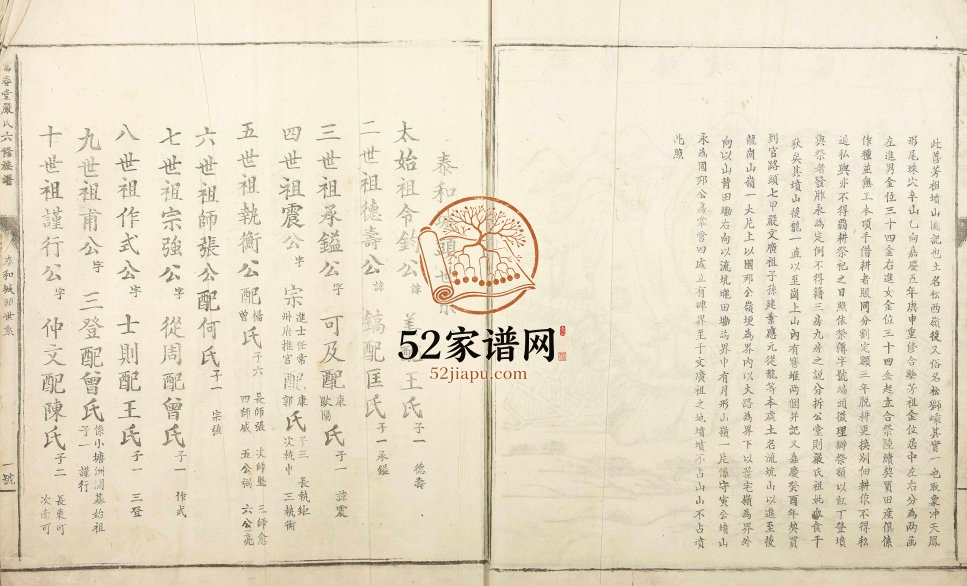 此善芳祖墳山圖記也土名松西嶺後又俗名松獅嵊其實一也取象冲天鳳
形尾珠穴辛山乙向嘉慶五年庚申重修合塟芳祖金位居中左右分為兩函
左進男金位三十四金右進女金位三十四金起立合祭陸續契買田産俱係
作種並無工本頂手借耕者眼同分割定額三年脱耕更換别佃耕作不得私
退私與亦不得覇耕祭祀之日照依祭簿字號編頭徴理辦祭額以紅丁登墳
與祭者發胙永為定例不得籍三房九房之説分拆公堂則嚴氏祖妣食千
秋矣其墳山後龍一直以至崗上山内有窨堆兩個并記又嘉慶癸酉年契買
到官路頭七甲嚴文廣祖子孫建業應元從龍等本處土名流坑山以進至後
龍崗山嶺一大片上以國邦公嶺埂為界内以大路為界下以蔡宅嶺為界外
向以山背田墈右向以流坑壠田墈為界中有月形山嶺一片係守寅公墳山
永為國邦公房掌管四處立有碑界至于文廣祖之城墳墳不占山山不占墳
此照
泰和 頭世系
太始祖令鈞公 諱 美 王氏 子一 德壽
二世祖德壽公 諱 鎬配匡氏 子一承鎰
三世祖承鎰公 字 可及配 康 歐陽 氏 子一 諱震
四世祖震公 字 宗 進士任常州府推官 配 康 郭 氏 子三 長執矩 次執中 三執衡
五世祖執衡公 配 楊 曾 氏 子六 長師張 次師堅 三師愈 四師威 五公弼 六公亮
六世祖師張公配何氏 子一 宗強
七世祖宗強公 字 從周配曾氏 子一 作式
八世祖作式公 士則配王氏 子一 三登
九世祖甫公 字 三登配曾氏 係小塘洲開基始祖 子一 謹行
十世祖謹行公 字 仲文配陳氏 子二 長東可 次南可
春堂嚴氏六修族譜
泰和城頭世系
一號
52家谱网
52jiapu.com